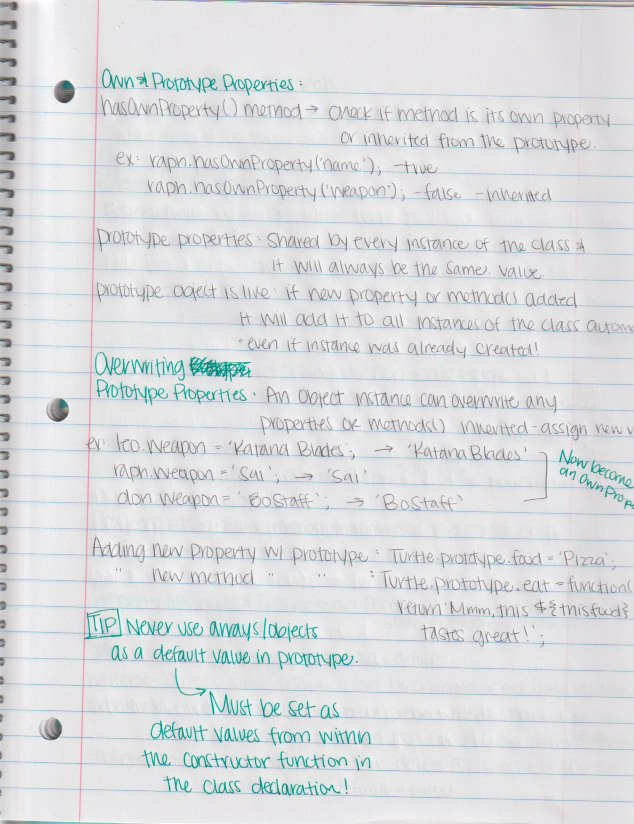 Own & Prototype Properties:
hasOwnProperty() method → check if method is its own property
or inherited from the prototype.
ex: raph.hasOwnProperty('name'); -true
raph.hasOwnProperty('weapon'); -false -inherited
prototype properties: Shared by every instance of the class &
it will always be the same value
prototype object is live: if new property or method() added
it will add it to all instances of the class autom
· even if instance was already created!
Overwriting
Prototype Properties: An object instance can overwrite any
properties or methods() inherited-assign new v
ex: leo.weapon = 'Katana Blades'; → 'Katana Blades'
raph.weapon = 'Sai'; → 'Sai'
don.weapon = 'BoStaff'; → 'BoStaff'
Now become
an own Prope
Adding new Property w/ prototype: Turtle.prototype.food = 'Pizza';
" new method " " : Turtle.prototype.eat = function(
return 'Mmm, this ${this.food}
tastes great!';
TIP Never use arrays/objects
as a default value in prototype.
Must be set as
default values from within
the constructor function in
the class declaration!